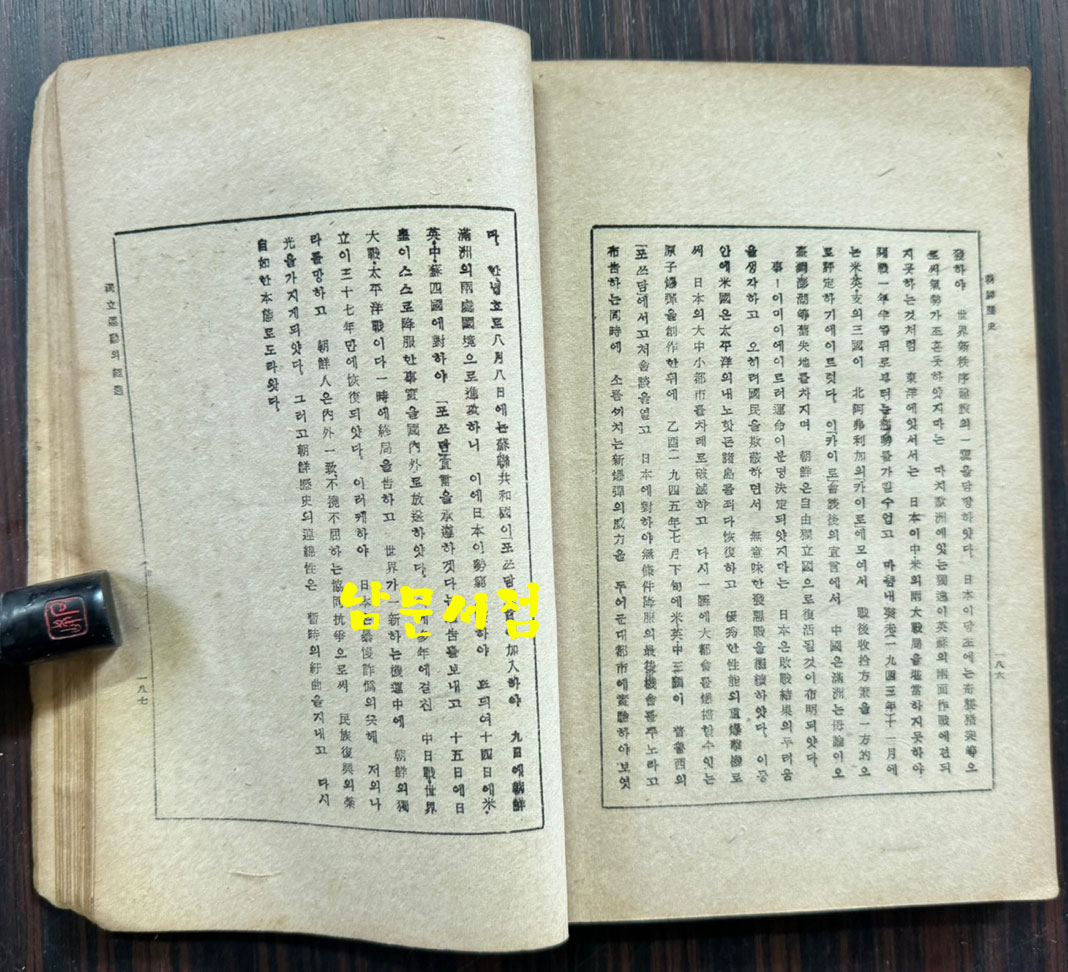 朝鮮歷史
一八六
發하야 世界新秩序建設의 一翼을擔當하얏다. 日本이當초에는
쏘씨氣勢가조흔듯하얏지마는 마치歐洲에잇는獨逸이英蘇의兩面作戰에견듸
지못하는것처럼 東洋에잇서서는 日本이中米의兩大戰局을堪當하지못하야
開戰一年半뒤로부터는 를가릴수업고 마츰내癸未一九四三年十一月에
는米·英·支의三國이 北阿弗利加의「카이로」에모여서 戰後收拾方案을一方的으
로評定하기에이르럿다. 이「카이로」會談後의宣言에서 中國은滿洲는毋論이오
臺灣澎湖等舊失地를차지며 朝鮮은自由獨立國으로復活될것이布明되얏다.
事!이미이에이르러運命이분명決定되얏지마는 日本은敗戰結果의두러움
을생각하고 오히려國民을欺蔽하면서 無意味한發惡戰을繼續하얏다. 이중
안에米國은太平洋의내노핫든諸島를죄다恢復하고 優秀한性能의重爆擊機로
써 日本의大中小都市를차례로破滅하고 다시一瞬에大都會를爆搭할수잇는
原子爆彈을創作한뒤에 乙酉一九四五年七月下旬에米英中三國이 普魯西의
「포쓰담」에서고쳐會談을열고 日本에對하야無條件降服의最後機會를주노라고
布告하는同時에 소름씨치는新爆彈의威力을 두어군대都市에實驗하야보엿
다. 한념호로八月八日에는蘇聯共和國이「포쓰담」 加入하야 九日에朝鮮
滿洲의兩處國境으로進攻하니 이에日本이勢窮 하야 드듸여十四日에米·
英·中·蘇四國에對하야 「포쓰담」宣言을承遵하겟다는 告를보내고 十五日에日
皇이스스로降服한事實을國內外로放送하얏다. 年에걸친 中日戰·世界
大戰·太平洋戰이다一時에終局을告하고 世界가 新하는機運中에 朝鮮의獨
立이三十七年만에恢復되얏다. 이러케하야 日本은暴慢詐僞의끗헤 저의나
라를망하고 朝鮮人은內外一致不撓不屈하는協同抗爭으로써 民族復興의榮
光을가지게되얏다. 그러고朝鮮歷史의連綿性은 暫時의紆曲을지내고 다시
自如한本態로도라왓다.
獨立運動의經過
一八七
남문서점